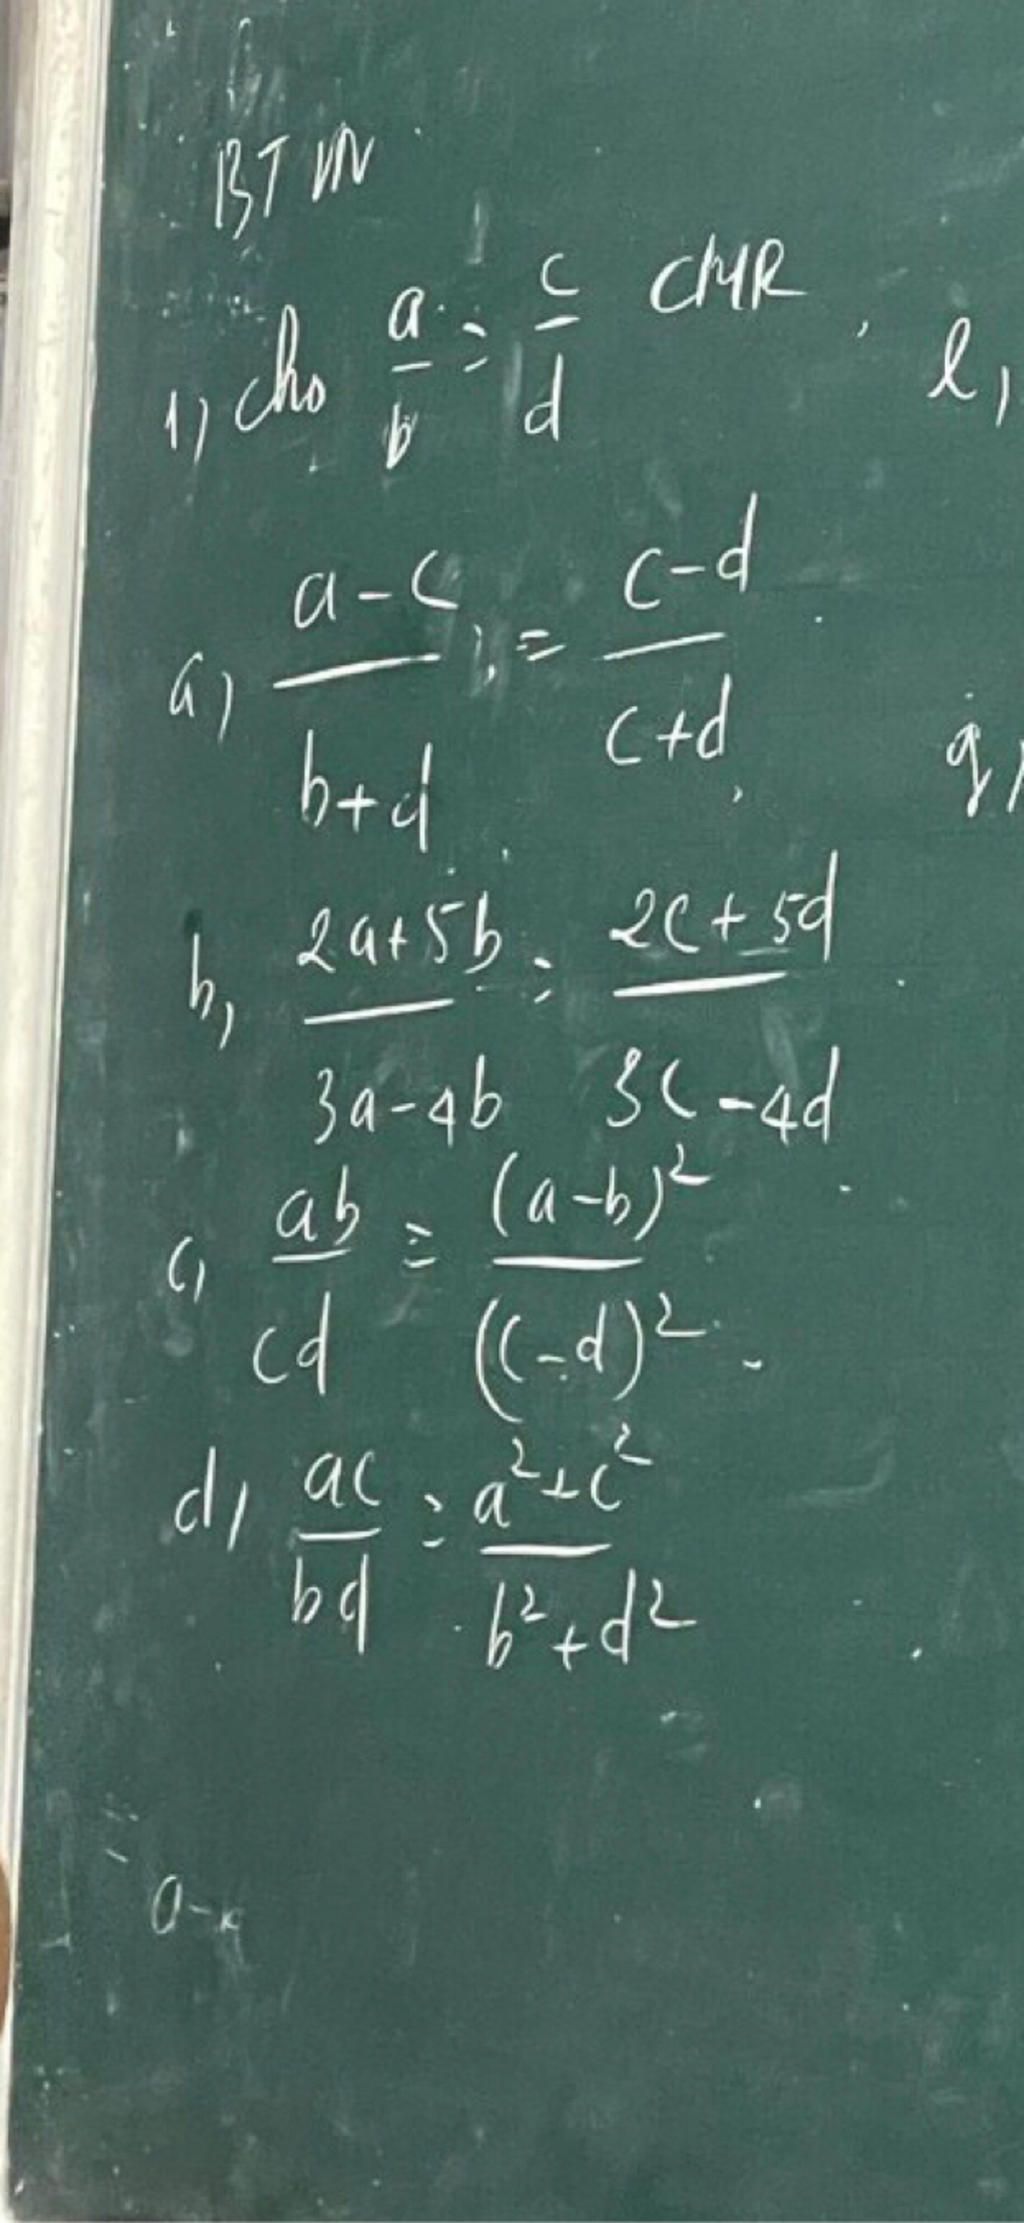 BTVN
1) cho a/b = c/d CMR
l,
a) (a-c)/(b+d) = (c-d)/(c+d)
q,
b, (2a+5b)/(3a-4b) = (2c+5d)/(3c-4d)
c, ab/cd = (a-b)²/(c-d)²
d, ac/bd = (a²+c²)/(b²+d²)